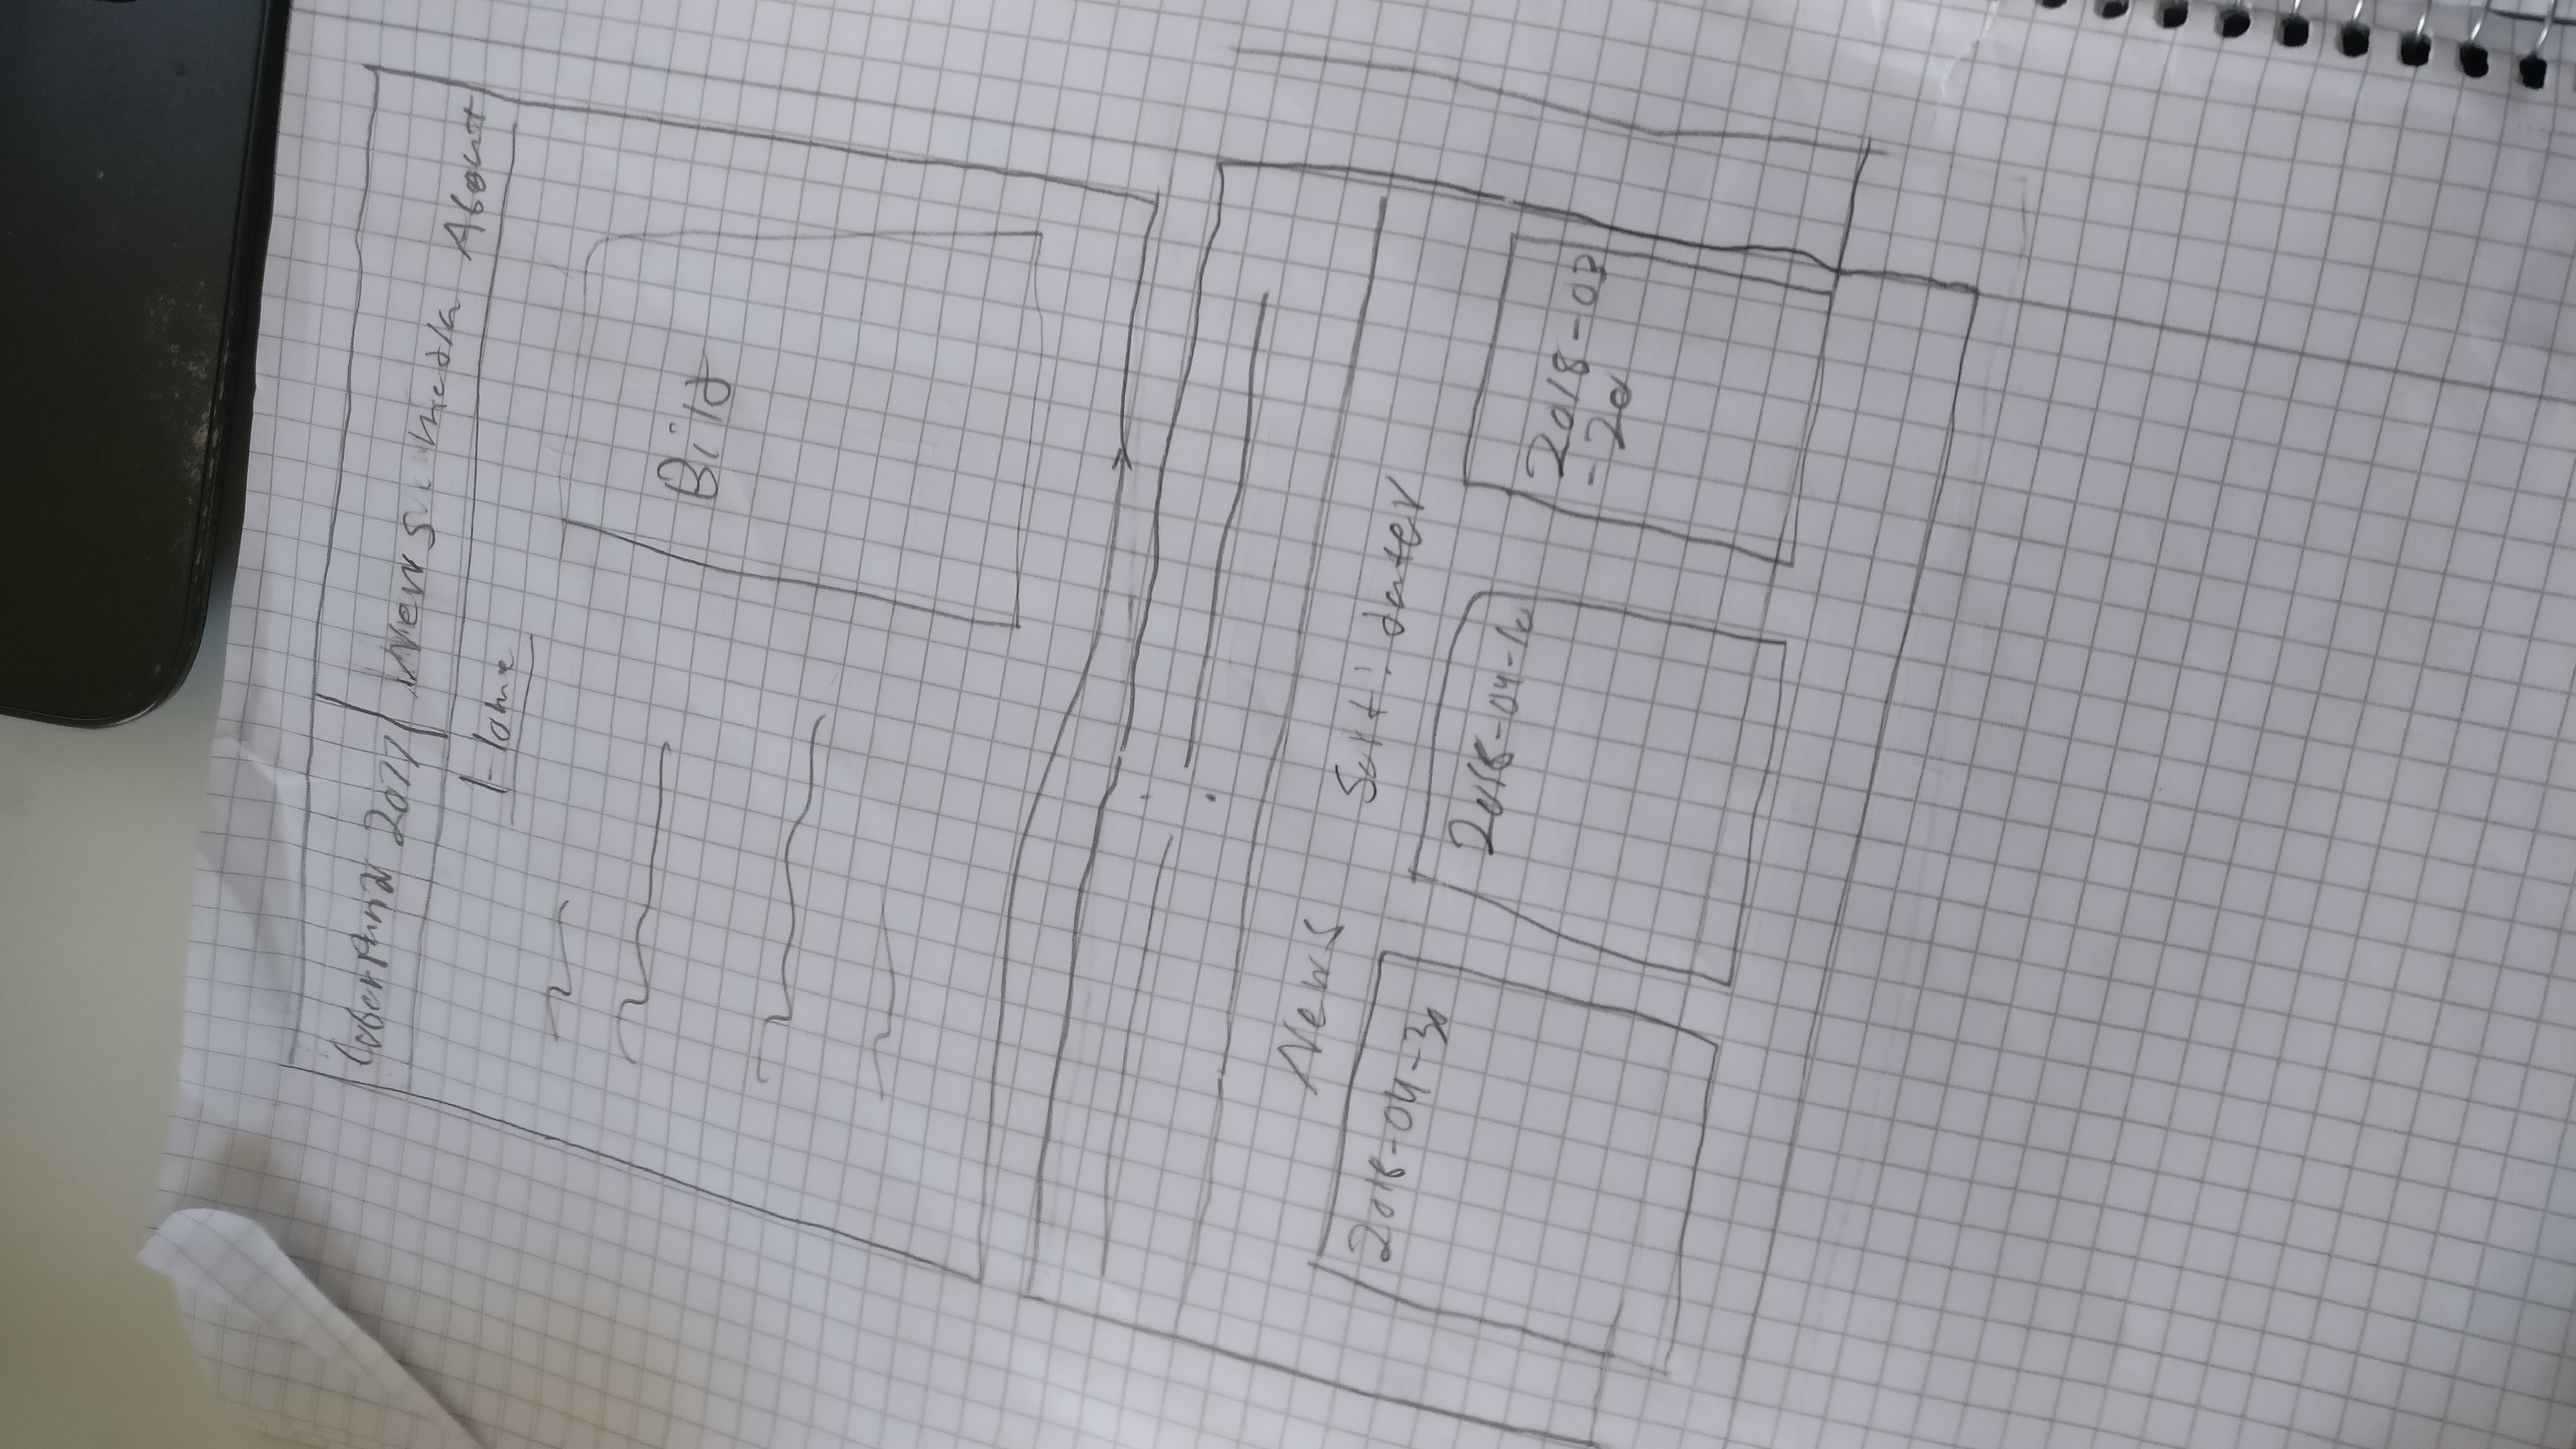 CyberPunk 2077 News media About
Home
Bild
News Sort: dater
2018-04-30 2018-04-10 2018-03
-20